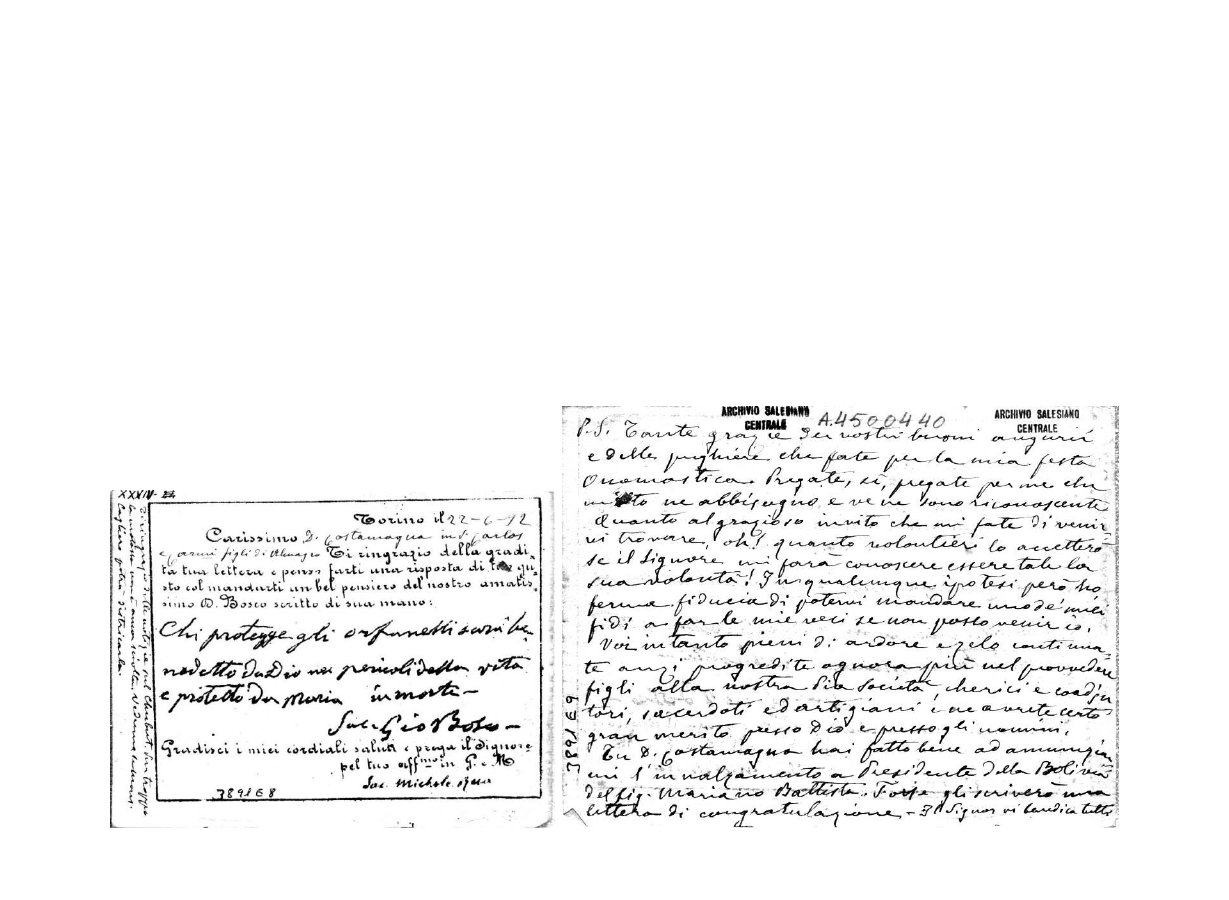 XXXIV- 22
Torino il 22-6-92
Carissimo D. Costamagna in S. Carlos
e carmi figli di Almagro Ti ringrazio della gradi-
ta tua lettera e penso farti una risposta di tuo gu-
sto col mandarti un bel pensiero del nostro amatis-
simo D. Bosco scritto di sua mano:
Chi protegge gli orfanelli sarà be-
nedetto da Dio nei pericoli della vita
e protetto da Maria in morte -
Sac. Gio Bosco -
Gradisci i miei cordiali saluti e prega il Signore
pel tuo affmo in G. e M
Sac. Michele Rua
389168
Ti ringrazio delle notizie sul
la
Cagliero potrà districarla.
ARCHIVIO SALESIANO
CENTRALE
A.4500440
ARCHIVIO SALESIANO
CENTRALE
P.S. Tante grazie dei vostri buoni augurii
e delle preghiere che fate per la mia festa
Onomastica. Pregate, sì, pregate per me che
molto ne abbisogno e ve ne sono riconoscente
Quanto al grazioso invito che mi fate di venir-
vi trovare, oh! quanto volontieri lo accetterò
se il Signore mi farà conoscere essere tale la
sua volontà! In qualunque ipotesi però ho
ferma fiducia di potervi mandare uno de' miei
fidi a far le mie veci se non posso venir io.
Voi intanto pieni di ardore e zelo continua-
te anzi progredite ognora più nel provveder
figli alla nostra Pia Società, cherici e coadju-
tori, sacerdoti ed artigiani e ne avrete certo
gran merito presso Dio e presso gli uomini.
Tu D. Costamagna hai fatto bene ad annunziar-
mi l'innalzamento a Presidente della Bolivia
del sig. Mariano Battista. Forse gli scriverò una
lettera di congratulazione - Il Signor vi benedica tutti
389169